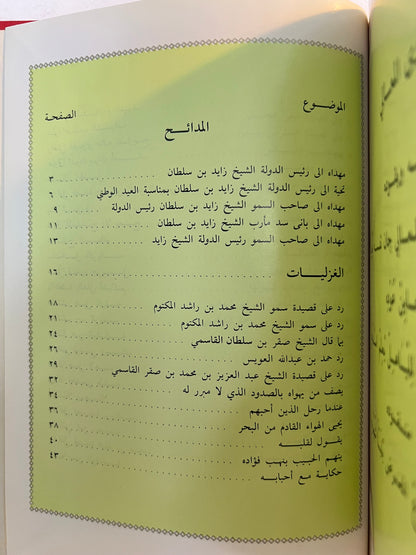 الموضوع الصفحة
المدائح
مهداه الى رئيس الدولة الشيخ زايد بن سلطان ٣
تحية الى رئيس الدولة الشيخ زايد بن سلطان بمناسبة العيد الوطني ٦
مهداه الى صاحب السمو الشيخ زايد بن سلطان رئيس الدولة ٩
مهداه الى بانى سد مأرب الشيخ زايد بن سلطان ١١
مهداه الى صاحب السمو رئيس الدولة الشيخ زايد ١٣
الغزليات ١٦
رد على قصيدة سمو الشيخ محمد بن راشد المكتوم ١٨
رد على سمو الشيخ محمد بن راشد المكتوم ٢١
بما قال الشيخ صقر بن سلطان القاسمي ٢٤
رد حمد بن عبدالله العويس ٢٦
رد على قصيدة الشيخ عبد العزيز بن محمد بن صقر القاسمي ٢٩
يصف من يهواه بالصدود الذي لا مبرر له ٣٢
عندما رحل الذين أحبهم ٣٤
يحيى الهواء القادم من البحر ٣٦
يقول لقلبه ٣٨
يتهم الحبيب بنهب فؤاده ٤٠
حكاية مع أحبابه ٤٣